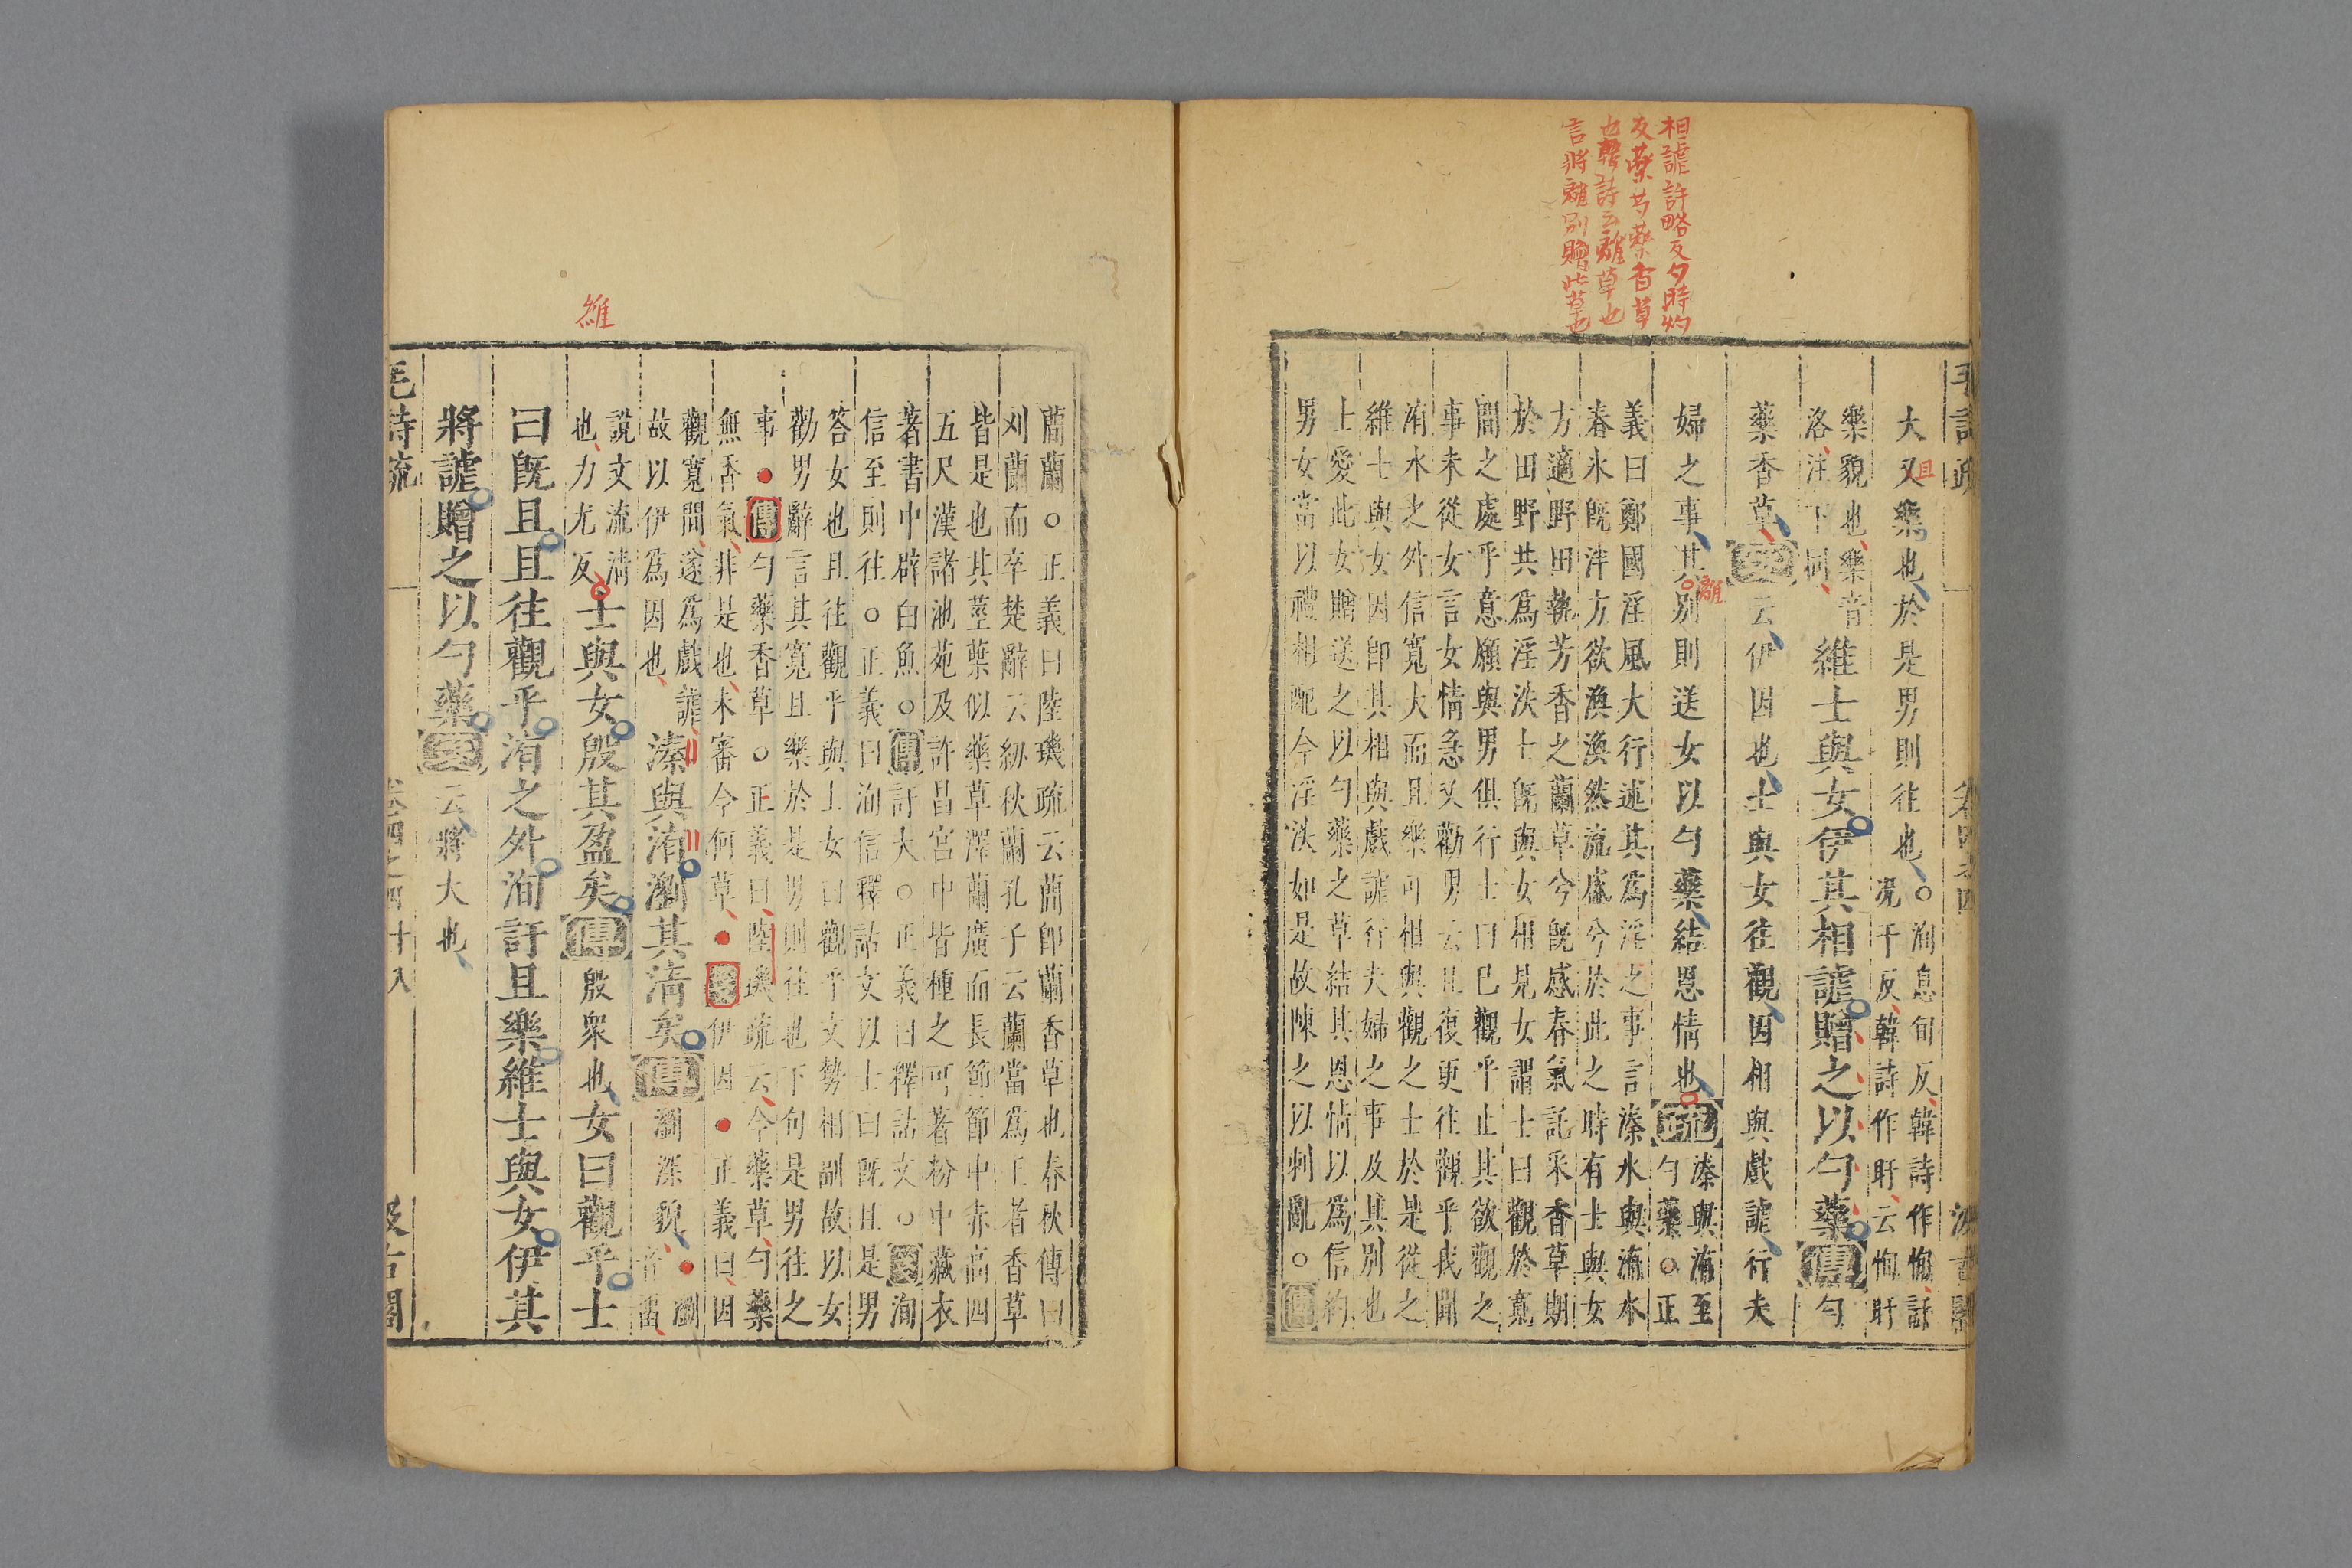 相謔許略反夕時灼
反藥芍藥香草
也韓詩云離草也
言將離別贈此草也
毛詩疏
大又樂也於是男則往也○洵息旬反韓詩作恂訏
且
況于反韓詩作盱云恂盱
樂貌也樂音
洛注下同
維士與女伊其相謔贈之以勺藥傳勺
藥香草箋云伊因也士與女往觀因相與戲謔行夫
婦之事其別則送女以勺藥結恩情也疏溱與洧至
離
勺藥○正
義曰鄭國淫風大行述其爲淫之事言溱水與洧水
春冰既泮方欲渙渙然流盛兮於此之時有士與女
方適野田執芳香之蘭草兮既感春氣託采香草期
於田野共爲淫泆士既與女相見女謂士曰觀於寬
間之處乎意願與男俱行士曰已觀乎止其欲觀之
事未從女言女情急又勸男云且復更往觀乎我聞
洧水之外信寬大而且樂可相與觀之士於是從之
維士與女因即其相與戲謔行夫婦之事及其別也
士愛此女贈送之以勺藥之草結其恩情以爲信約
男女當以禮相配今淫泆如是故陳之以刺亂○傳
蕑蘭○正義曰陸璣疏云蕑即蘭香草也春秋傳曰
刈蘭而卒楚辭云紉秋蘭孔子云蘭當爲王者香草
皆是也其莖葉似藥草澤蘭廣而長節節中赤高四
五尺漢諸池苑及許昌宮中皆種之可著粉中藏衣
著書中辟白魚○傳訏大○正義曰釋詁文○箋洵
信至則往○正義曰洵信釋詁文以士曰既且是男
答女也且往觀乎與上女曰觀乎文勢相副故以女
勸男辭言其寬且樂於是男則往也下句是男往之
事傳勺藥香草○正義曰陸璣疏云今藥草勺藥
無香氣非是也未審今何草箋伊因正義曰因
觀寬間遂爲戲謔
故以伊爲因也
溱與洧瀏其清矣傳瀏深貌瀏
音留
說文流清
也力尤反
士與女殷其盈矣傳殷衆也女曰觀乎士
維
曰既且且往觀乎洧之外洵訏且樂維士與女伊其
將謔贈之以勺藥箋云將大也
毛詩疏
卷四之四
十八
汲古閣